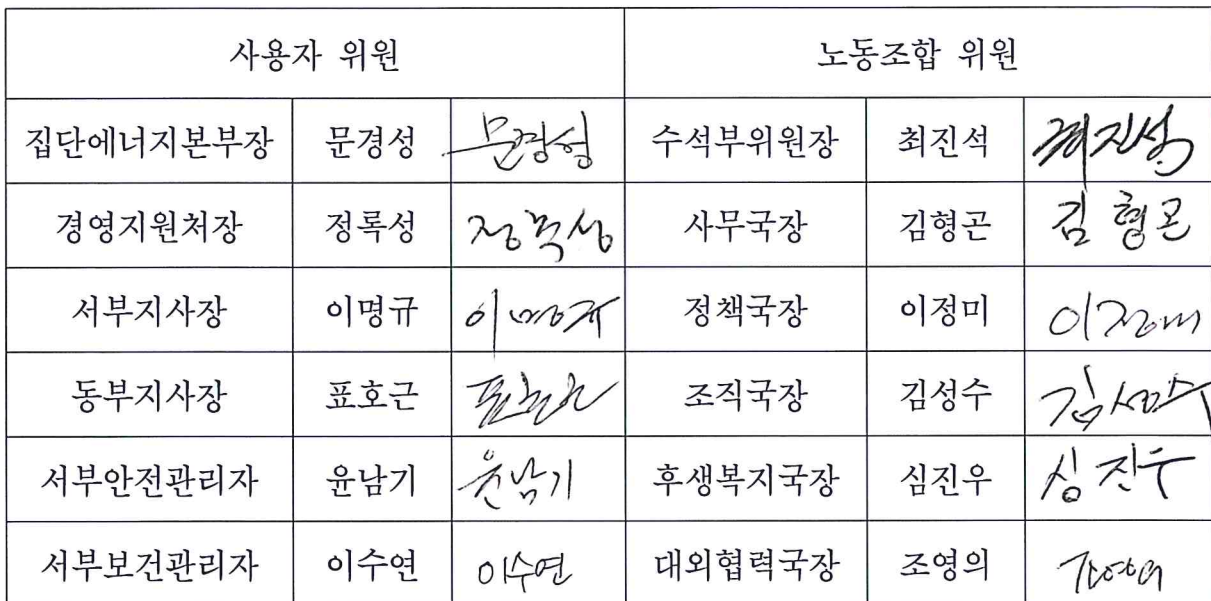 사용자 위원 노동조합 위원
집단에너지본부장 문경성 문경성 수석부위원장 최진석 최진석
경영지원처장 정록성 정록성 사무국장 김형곤 김형곤
서부지사장 이명규 이명규 정책국장 이정미 이정미
동부지사장 표호근 표호근 조직국장 김성수 김성수
서부안전관리자 윤남기 윤남기 후생복지국장 심진우 심진우
서부보건관리자 이수연 이수연 대외협력국장 조영의 조영의